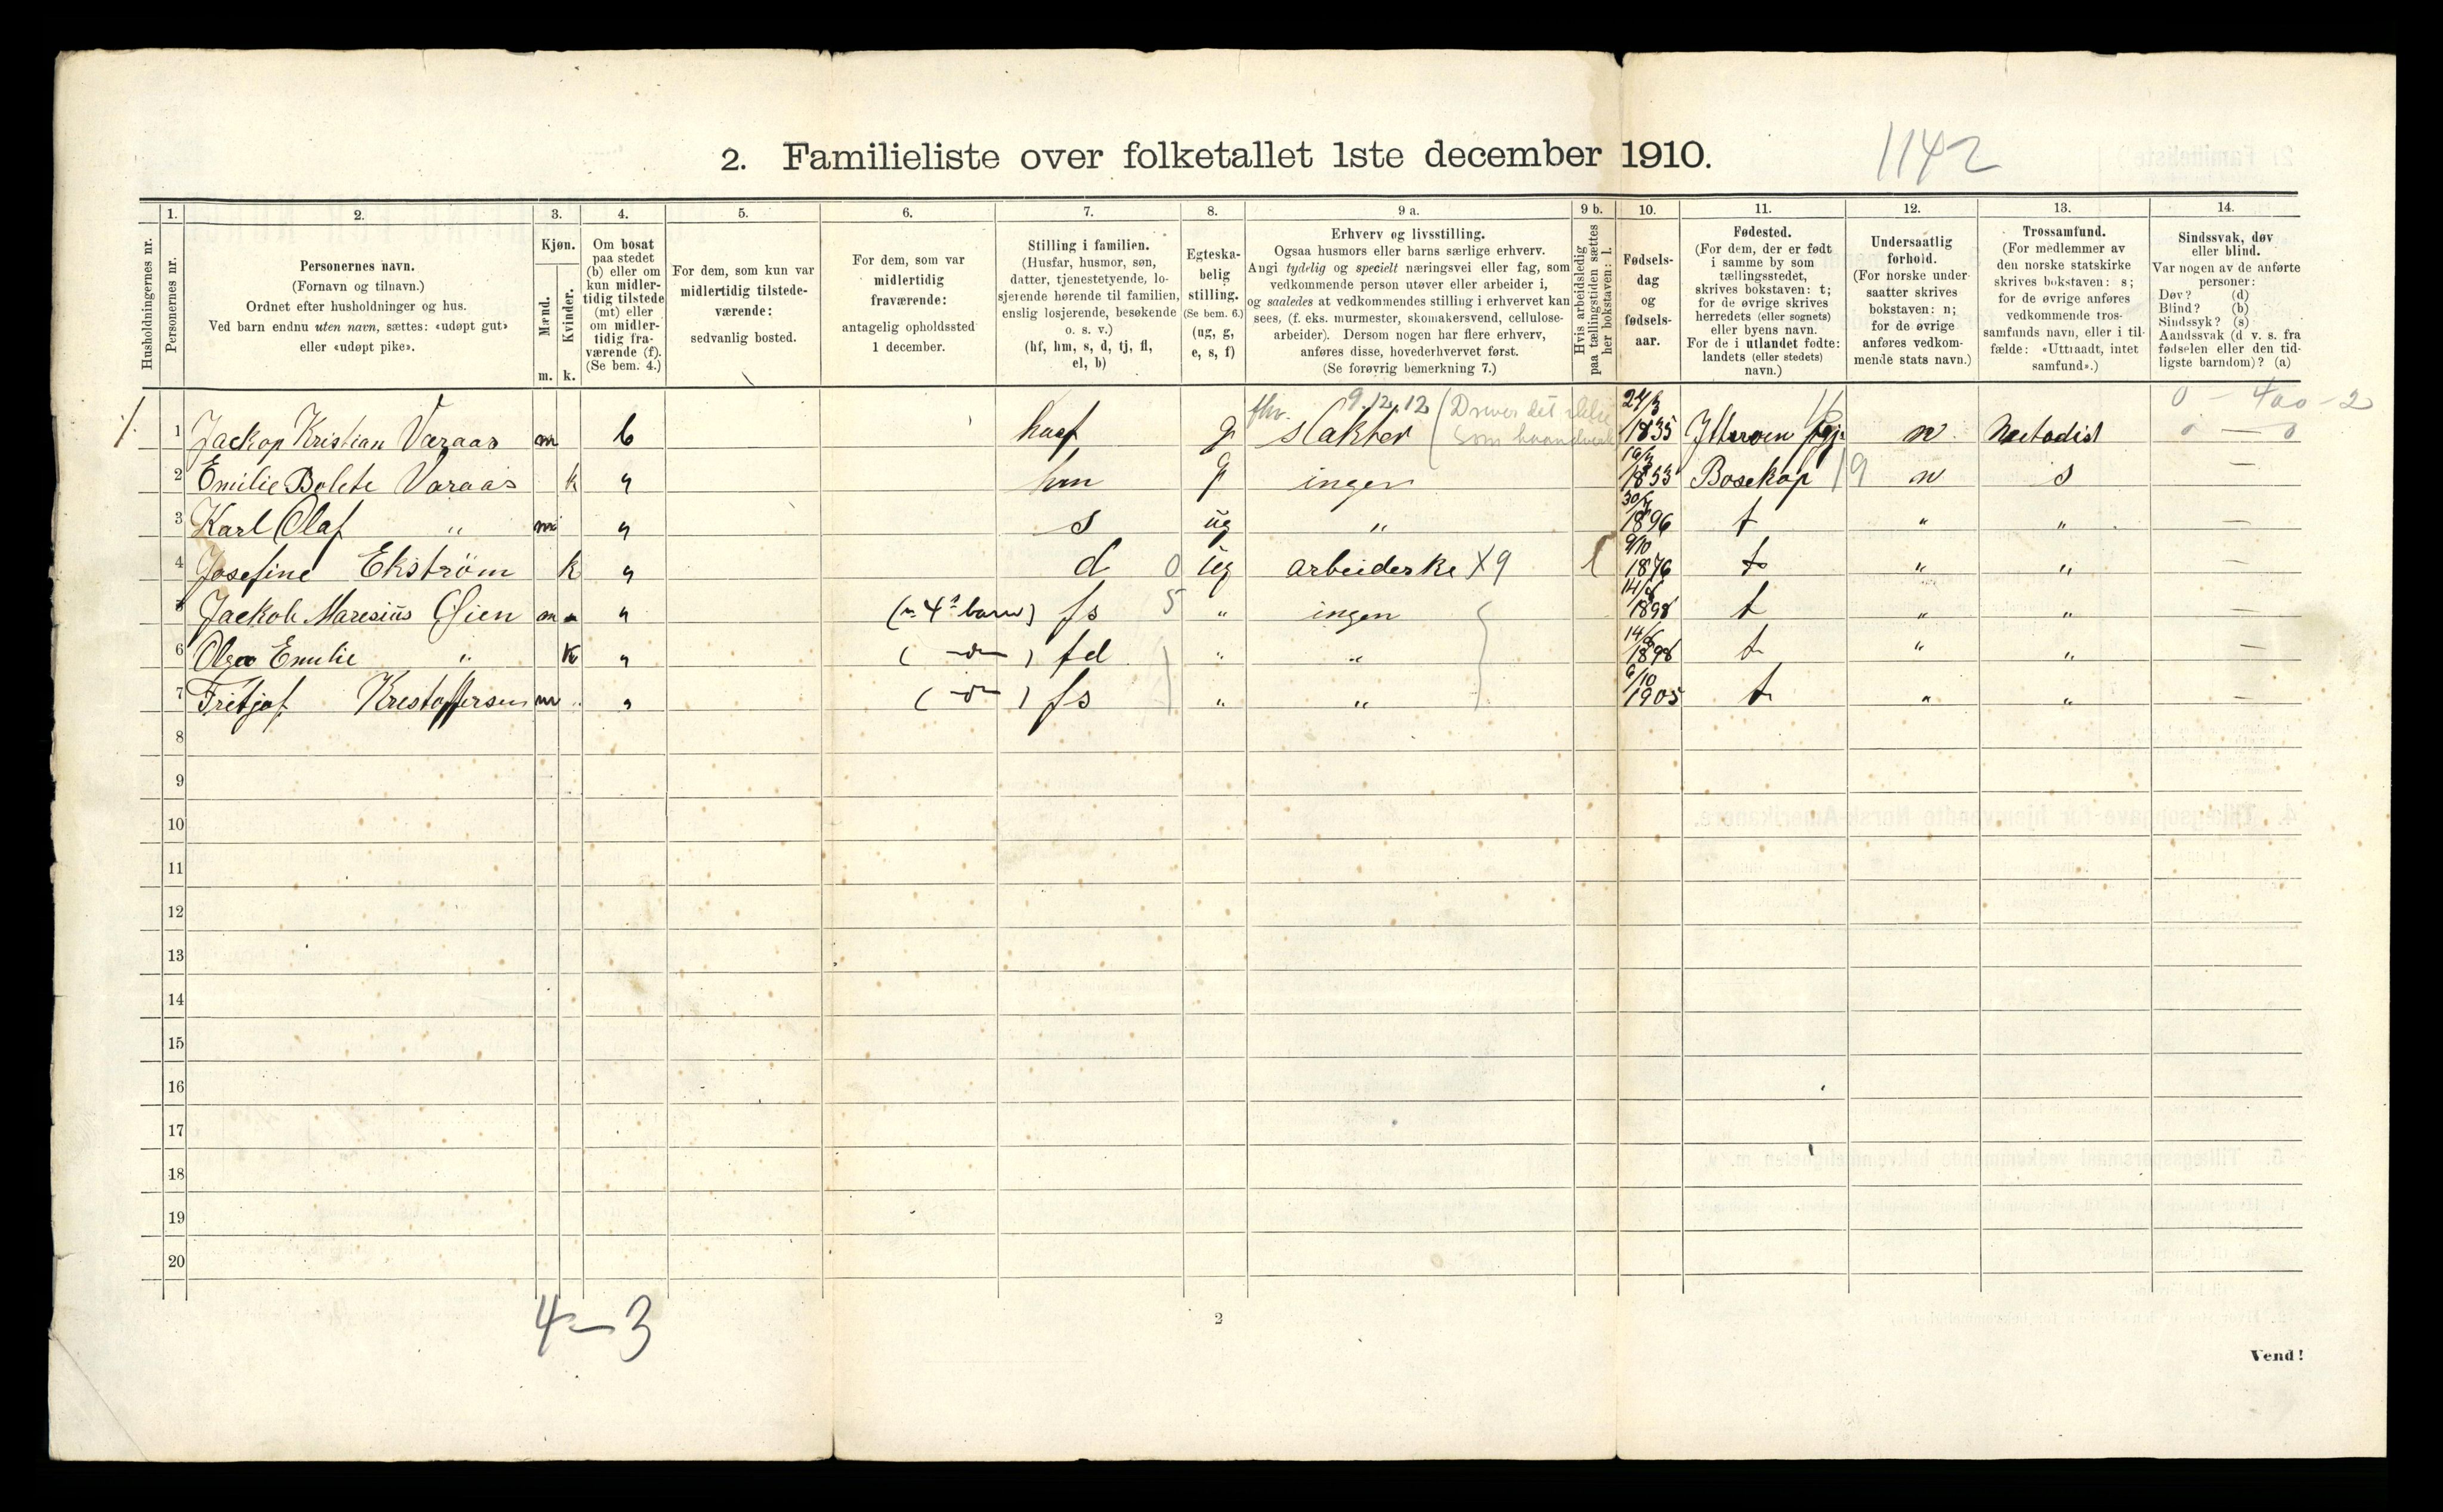 2. Familieliste over folketallet 1ste december 1910.
1142
Husholdningernes nr.
1.
Personernes nr.
2.
Personernes navn.
(Fornavn og tilnavn.)
Ordnet efter husholdninger og hus.
Ved barn endnu uten navn, sættes: «udøpt gut»
eller «udøpt pike».
3.
Kjøn.
Mænd.
Kvinder.
m. k.
4.
Om bosat
paa stedet
(b) eller om
kun midler-
tidig tilstede
(mt) eller
om midler-
tidig fra-
værende (f).
(Se bem. 4.)
5.
For dem, som kun var
midlertidig tilstede-
værende:
sedvanlig bosted.
6.
For dem, som var
midlertidig
fraværende:
antagelig opholdssted
1 december.
7.
Stilling i familien.
(Husfar, husmor, søn,
datter, tjenestetyende, lo-
sjerende hørende til familien,
enslig losjerende, besøkende
o. s. v.)
(hf, hm, s, d, tj, fl,
el, b)
8.
Egteska-
belig
stilling.
(Se bem. 6.)
(ug, g,
e, s, f)
9 a.
Erhverv og livsstilling.
Ogsaa husmors eller barns særlige erhverv.
Angi tydelig og specielt næringsvei eller fag, som
vedkommende person utøver eller arbeider i,
og saaledes at vedkommendes stilling i erhvervet kan
sees, (f. eks. murmester, skomakersvend, cellulose-
arbeider). Dersom nogen har flere erhverv,
anføres disse, hovederhvervet først.
(Se forøvrig bemerkning 7.)
9 b.
Hvis arbeidsledig
paa tællingstiden sættes
her bokstaven: l.
10.
Fødsels-
dag
og
fødsels-
aar.
11.
Fødested.
(For dem, der er født
i samme by som
tællingsstedet,
skrives bokstaven: t;
for de øvrige skrives
herredets (eller sognets)
eller byens navn.
For de i utlandet fødte:
landets (eller stedets)
navn.)
12.
Undersaatlig
forhold.
(For norske under-
saatter skrives
bokstaven: n;
for de øvrige
anføres vedkom-
mende stats navn.)
13.
Trossamfund.
(For medlemmer av
den norske statskirke
skrives bokstaven: s;
for de øvrige anføres
vedkommende tros-
samfunds navn, eller i til-
fælde: «Uttraadt, intet
samfund».)
14.
Sindssvak, døv
eller blind.
Var nogen av de anførte
personer:
Døv? (d)
Blind? (b)
Sindssyk? (s)
Aandssvak (d v. s. fra
fødselen eller den tid-
ligste barndom)? (a)
9.12.12 (Driver det ikke som haandverk
0 - 400 - 2
1 Jackop Kristian Varaas m b huf g slakter 24/3 1835 Ytterøen n Metodist
2 Emilie Bolete Varaas k " hm g ingen 1853 Bosekop 19 n s —
3 Karl Olaf " m " s ug " 1896 t " " —
4 Josefine Ekström k " d 0 ug arbeiderske X9 l 9/10 1876 t " " —
5 Jackob Maresius Olsen m " fs 5 " ingen 1898 t " " —
6 Olga Emilie " k " ( -"- ) fd " " 1898 t " " —
7 Fritjof Krestoffersen m " ( -"- ) fs " " 6/10 1905 t " " —
8
9
10
11
12
13
14
15
16
17
18
19
20
4-3
2
Vend!